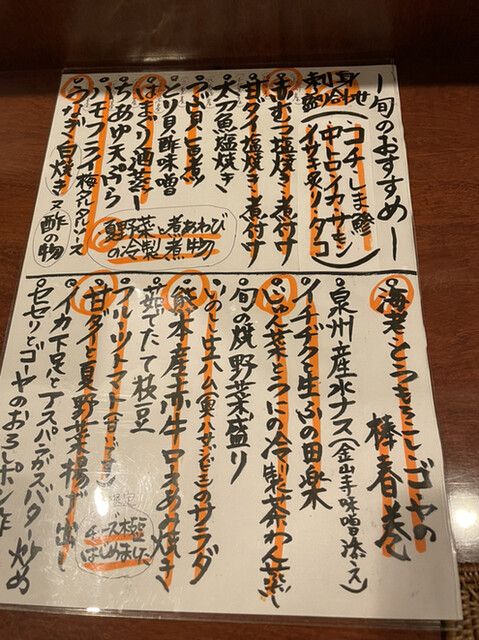 ー旬のおすすめー
刺身盛り合わせ
コチ・しま鯵
中トロ・イカ・サーモン
イサキ炙り・タコ
赤むつ塩焼き・煮付け
甘ダイ塩焼き・煮付け
太刀魚塩焼き
つぶ貝旨煮
とり貝酢味噌
はまぐり酒蒸し
ちあゆ天ぷら
ハモフライ梅タルタルソース
うなぎ白焼き又酢の物
夏野菜と煮あわび
の冷製煮物
海老とうもろこしゴーヤの
棒春巻
泉州産水ナス(金山寺味噌添え)
イチヂクと生ふの田楽
じゅん菜とうにの冷製茶わん蒸し
旬の焼野菜盛り
熊本産赤牛ロースあみ焼き
茹でたて枝豆
フルーツトマト
甘ダイと夏野菜揚げ出し
イカ下足とアスパラガスバター炒め
セセリとゴーヤのおろしポン酢
はじめました